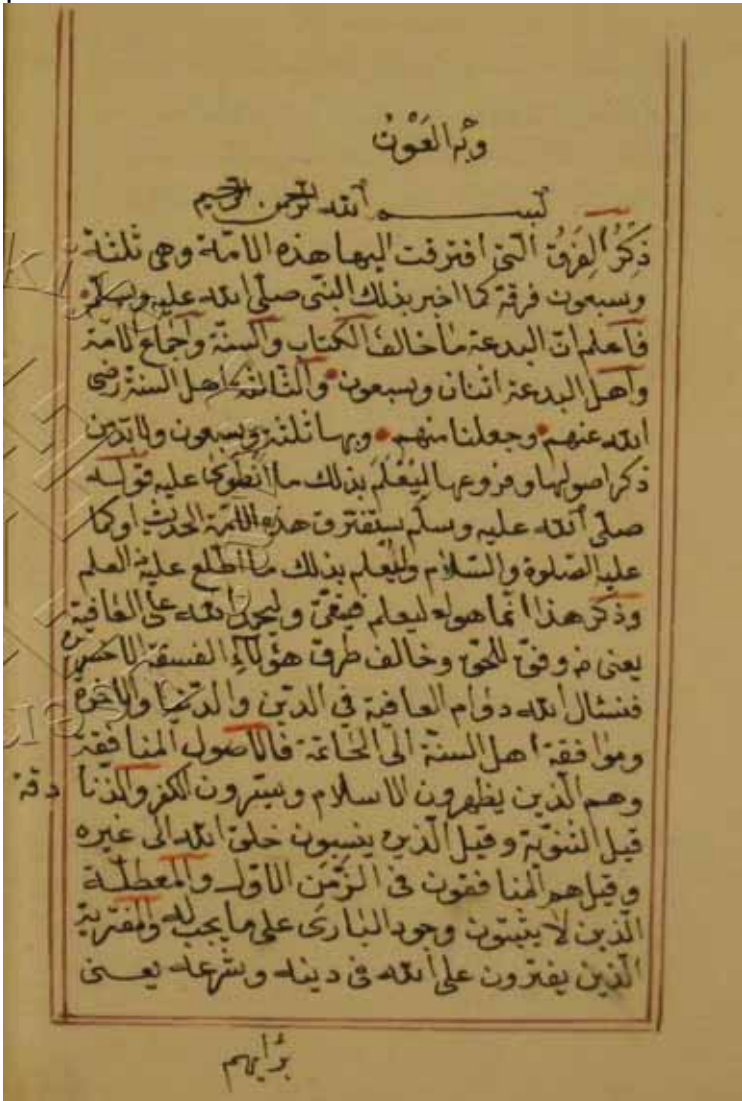 وبه العَوْنُ
بسم الله الرحمن الرحيم
ذِكْرُ الفِرَقُ الّتى افترقت اليها هذه الامّة وهى ثلثة
وسبعون فرقة كما اخبر بذلك النبّى صلّى الله عليه وسلّم
فاعلم انّ البدعة ما خالف الكتاب والسنّة واجماع الامّة
واهل البدعة اثنان وسبعون والثالثة اهل السنة رضى
الله عنهم وجعلنا منهم وبها ثلثة وسبعون ولا بدّ من
ذكر اصولها وفروعها ليُعْلَمَ بذلك ما انطَوَى عليه قوله
صلّى الله عليه وسلّم ستفترق هذه الامّة الحديث او كما
عليه الصّلوة والسّلام وليُعلم بذلك ما اطّلع عليه العلم
وذكر هذا انّما هو له ليعلم فيتّقى وليحمد الله على العافية
يعنى من وفّق للحقّ وخالف طرق هؤلاءِ الفسقة
فنسئال الله دوام العافية فى الدّين والدّنيا والاخرة
وموافقة اهل السنّة الى الخاتمة فالاصول المنافقة
وهم الّذين يظهرون الاسلام ويسترون الكفر والزّنا دقة
قيل الثنويّة وقيل الّذين ينسبون خلق الله الى غيره
وقيل هم المنافقون فى الزّمن الاوّل والمعطلّة
الّذين لا يثبتون وجود البارى على ما يجب له والمفترية
الّذين يفترون على الله فى دينه وشرعه يعنى
برايهم